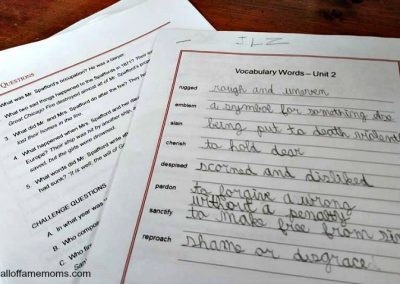 QUESTIONS
What was Mr. Spafford's occupation? He was a lawyer
What two sad things happened to the Spaffords in 1871? Their
Great Chicago Fire destroyed almost all of Mr. Spafford's
3. What did Mr. and Mrs. Spafford do after the fire? They
lost their homes in the fire.
4. What happened when Mrs. Spafford and
Europe? Their ship was hit by another ship,
saved, but the girls were drowned.
5. What words did Mr. Spafford
had sunk? "It is well, the will of
CHALLENGE QUESTIONS
A. In what year was
B. Who compos
C. Who
Spaff
JLZ
Vocabulary Words – Unit 2
rugged rough and uneven
emblem a symbol for something else
slain being put to death violentl
cherish to hold dear
despised scorned and disliked
pardon to forgive a wrong
without a penalty
sanctify to make free from sin
reproach shame or disgrace
alloffamemoms.com